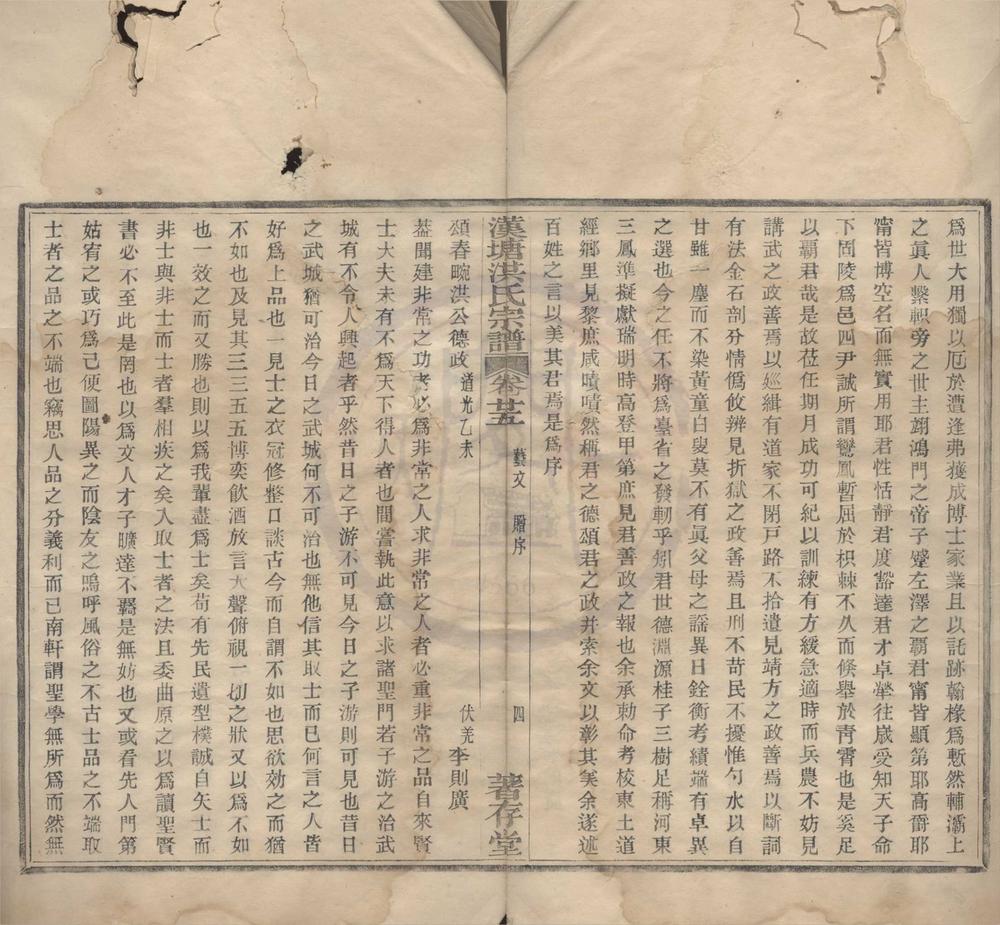 爲世大用獨以厄於遭逢弗獲成博士家業且以託跡翰椽爲慙然輔灞上
之眞人繫軹旁之世主翊鴻門之帝子蹵左澤之覇君甯皆顯第耶高爵耶
甯皆博空名而無實用耶君性恬靜君度豁達君才卓犖往歲受知天子命
下固陵爲邑四尹誠所謂鸞鳳暫屈於枳棘不久而倏舉於靑霄也是奚足
以覇君哉是故莅任期月成功可紀以訓練有方緩急適時而兵農不妨見
講武之政善焉以廵緝有道家不閉戸路不拾遺見靖方之政善焉以斷詞
有法金石剖分情僞攸辨見折獄之政善焉且刑不苛民不擾惟勺水以自
甘雖一塵而不染黃童白叟莫不有眞父母之謠異日銓衡考績端有卓異
之選也今之任不將爲臺省之發軔乎矧君世德淵源桂子三樹足稱河東
三鳳準擬獻瑞明時高登甲第庶見君善政之報也余承勅命考校東土道
經鄉里見黎庶咸嘖嘖然稱君之德頌君之政并索余文以彰其美余遂述
百姓之言以美其君焉是爲序
漢塘洪氏宗譜 卷廿五 藝文 贈序 四 著存堂
頌春畹洪公德政 道光乙未 伏羌李則廣
葢聞建非常之功者必爲非常之人求非常之人者必重非常之品自來賢
士大夫未有不爲天下得人者也間嘗執此意以求諸聖門若子游之治武
城有不令人興起者乎然昔日之子游不可見今日之子游則可見也昔日
之武城猶可治今日之武城何不可治也無他信其取士而已何言之人皆
好爲上品也一見士之衣冠修整口談古今而自謂不如也思欲効之而猶
不如也及見其三三五五博奕飮酒放言大聲俯視一切之狀又以爲不如
也一效之而又勝也則以爲我輩盡爲士矣苟有先民遺型樸誠自矢士而
非士與非士而士者羣相疾之矣入取士者之法且委曲原之以爲讀聖賢
書必不至此是罔也以爲文人才子曠達不羈是無妨也又或看先人門第
姑宥之或巧爲己便圖陽異之而陰友之嗚呼風俗之不古士品之不端取
士者之品之不端也竊思人品之分義利而已南軒謂聖學無所爲而然無